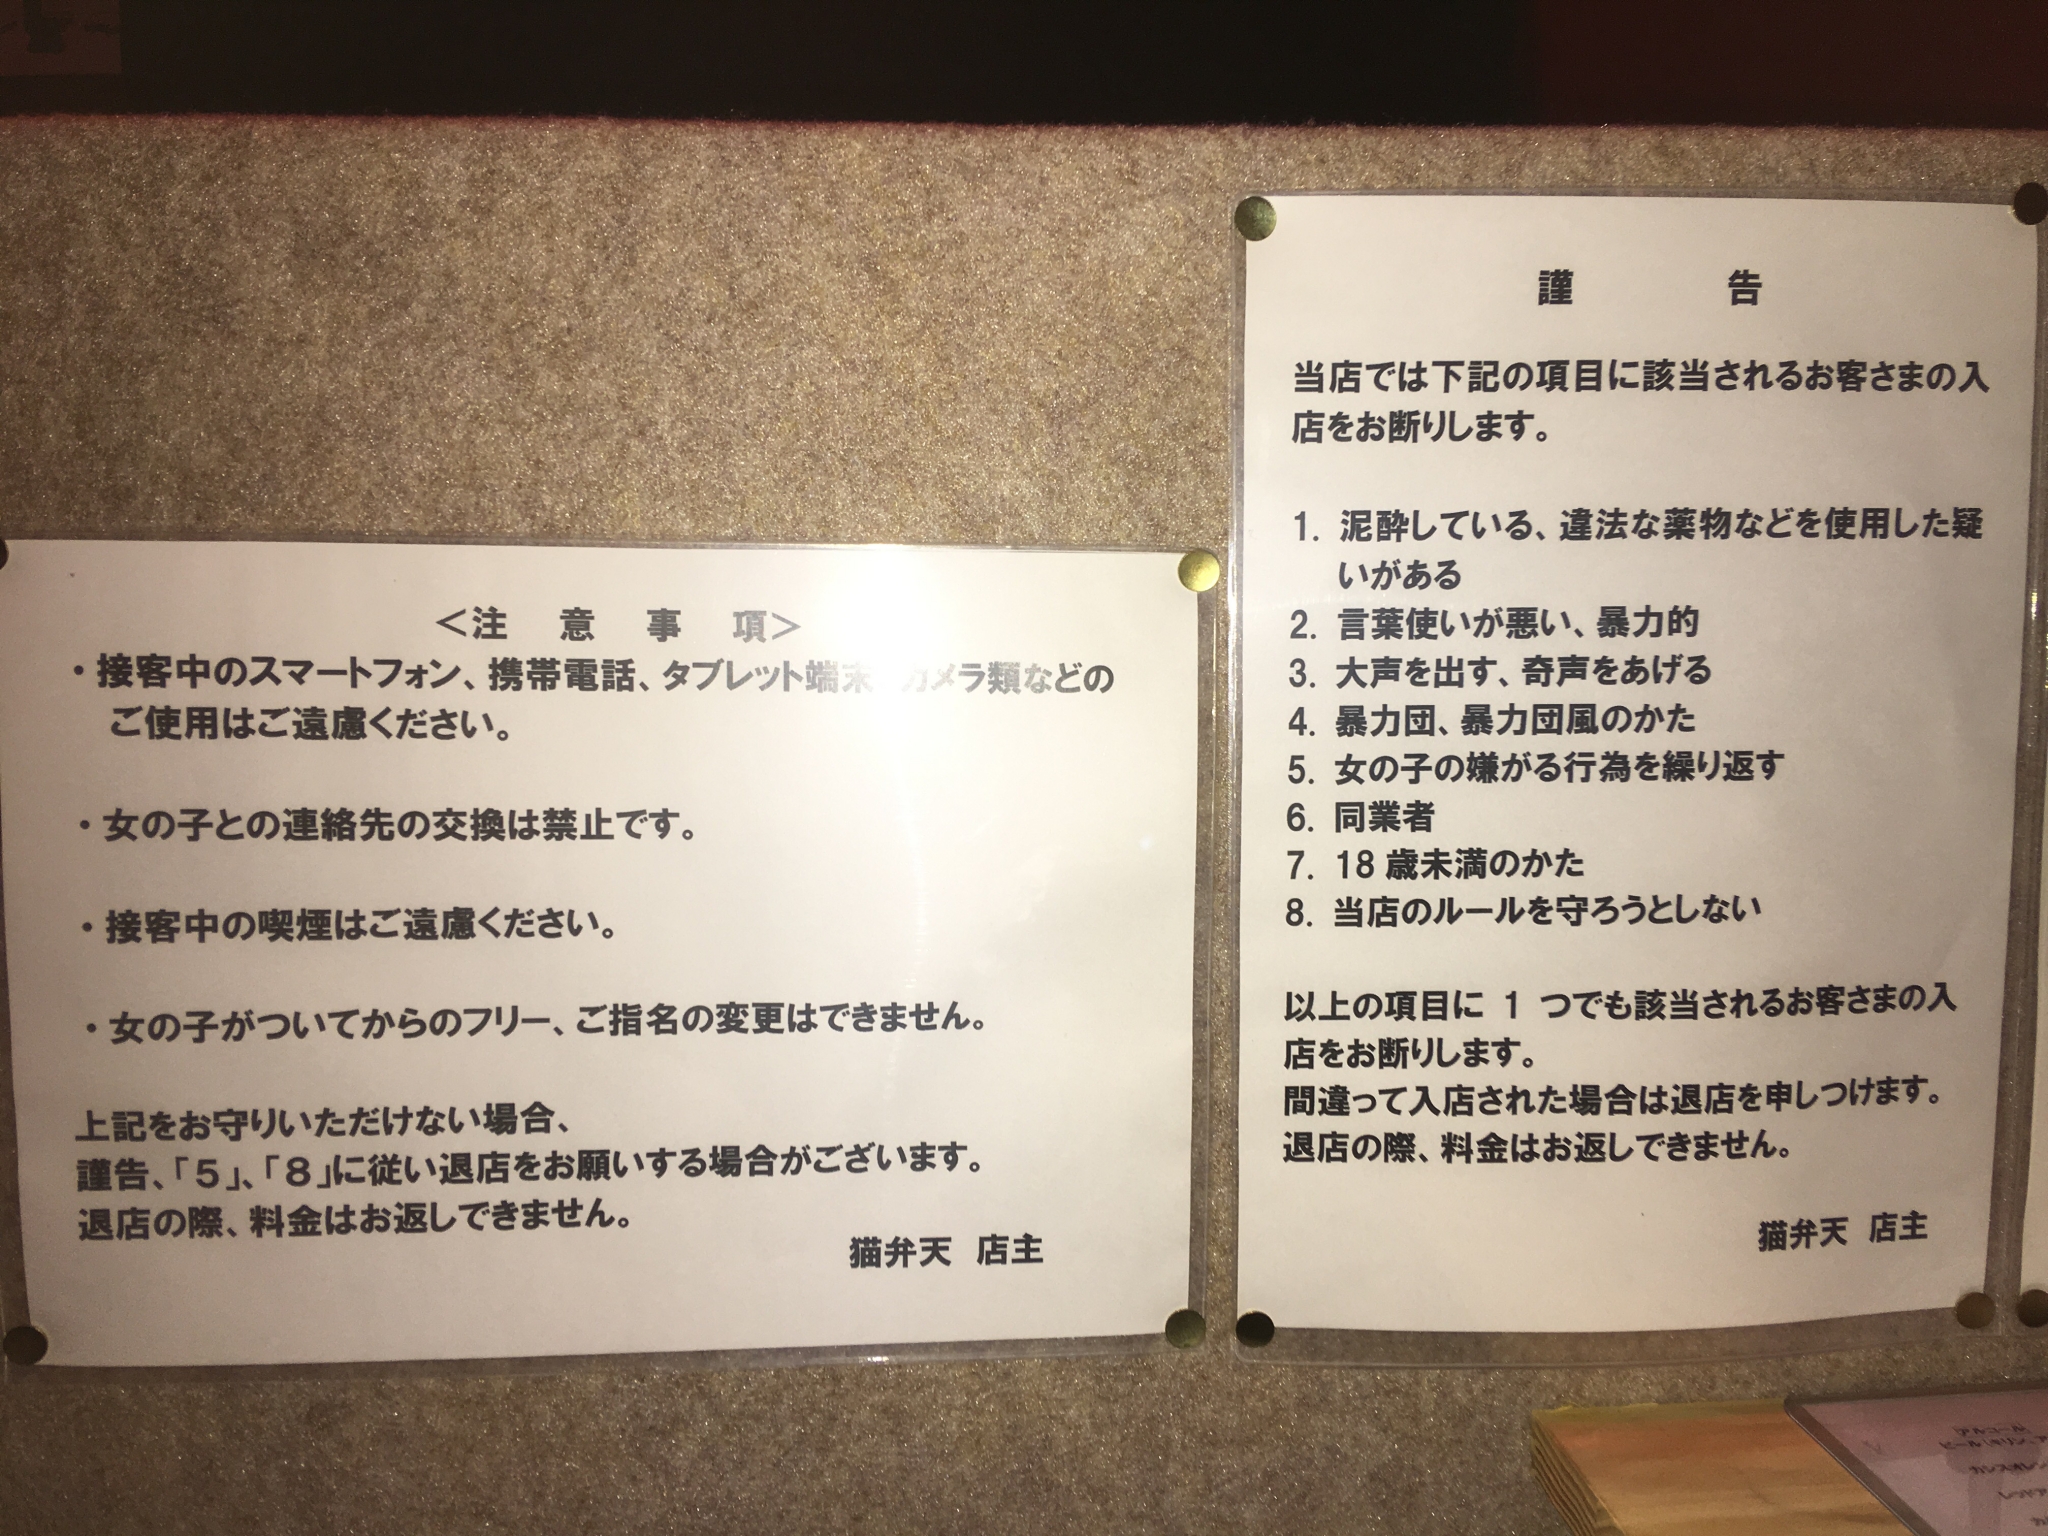 ＜注 意 事 項＞
・接客中のスマートフォン、携帯電話、タブレット端末 カメラ類などの
ご使用はご遠慮ください。
・女の子との連絡先の交換は禁止です。
・接客中の喫煙はご遠慮ください。
・女の子がついてからのフリー、ご指名の変更はできません。
上記をお守りいただけない場合、
謹告、「５」、「８」に従い退店をお願いする場合がございます。
退店の際、料金はお返しできません。
猫弁天 店主
謹 告
当店では下記の項目に該当されるお客さまの入
店をお断りします。
1. 泥酔している、違法な薬物などを使用した疑
いがある
2. 言葉使いが悪い、暴力的
3. 大声を出す、奇声をあげる
4. 暴力団、暴力団風のかた
5. 女の子の嫌がる行為を繰り返す
6. 同業者
7. 18 歳未満のかた
8. 当店のルールを守ろうとしない
以上の項目に 1 つでも該当されるお客さまの入
店をお断りします。
間違って入店された場合は退店を申しつけます。
退店の際、料金はお返しできません。
猫弁天 店主